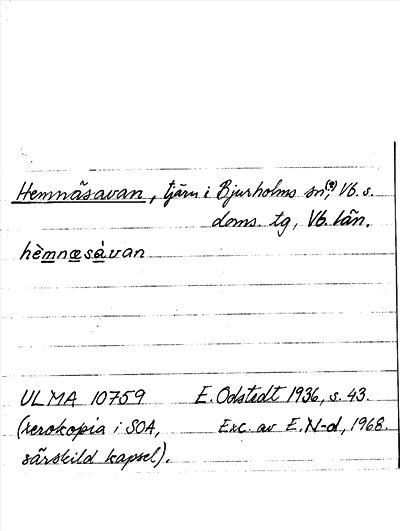 Hemnäsavan, tjärn i Bjurholms sn(?), Vb. s.
doms. tg, Vb. län.
hèmnœsàvan
ULMA 10759 E. Odstedt 1936, s. 43.
(xerokopia i SOA, Exc. av E. N-d, 1968.
särskild kapsel).